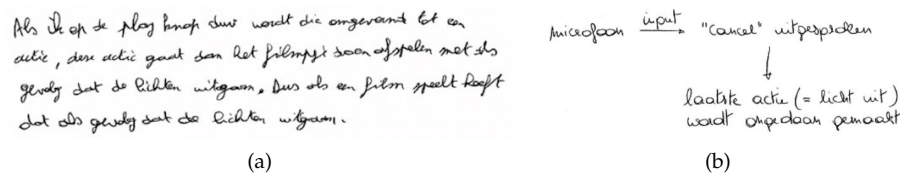 Als ik op de play knop duw wordt die omgevormt tot een
actie, deze actie gaat dan het filmpje doen afspelen met als
gevolg dat de lichten uitgaan. Dus als een film speelt heeft
dat als gevolg dat de lichten uitgaan.
(a)
microfoon input "cancel" uitgesproken
laatste actie (= licht uit)
wordt ongedaan gemaakt
(b)